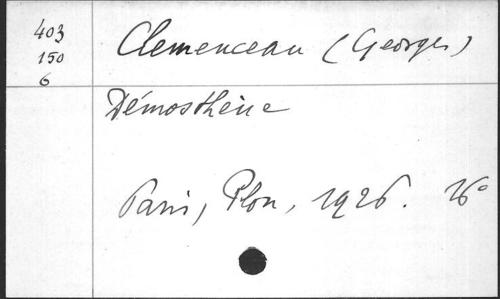 403
150
6
Clemenceau (Georges)
Démosthène
Paris, Plon, 1926. 16°